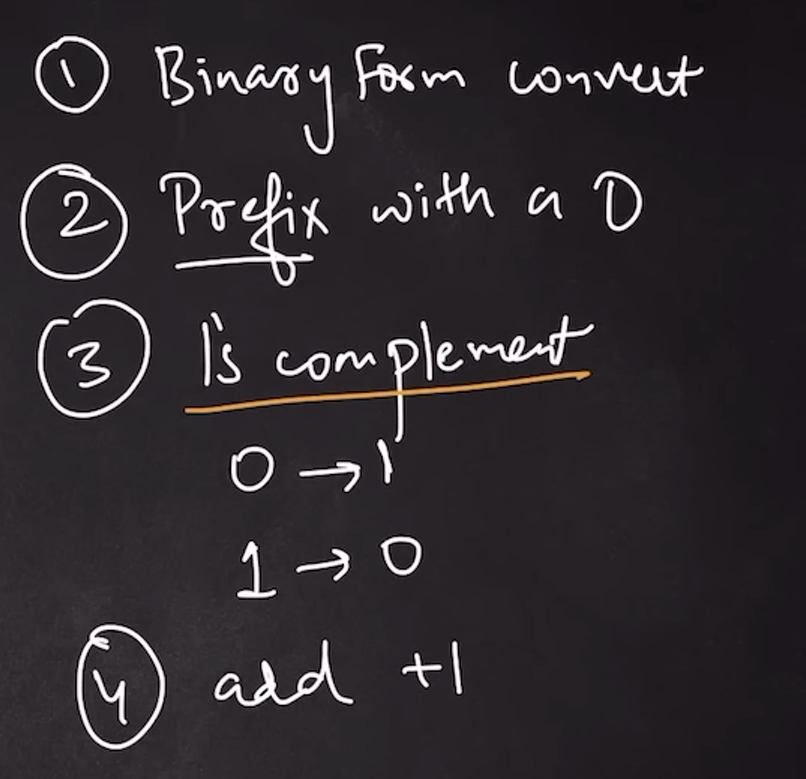 1 Binary Form convert
2 Prefix with a 0
3 1's complement
0 → 1
1 → 0
4 add +1